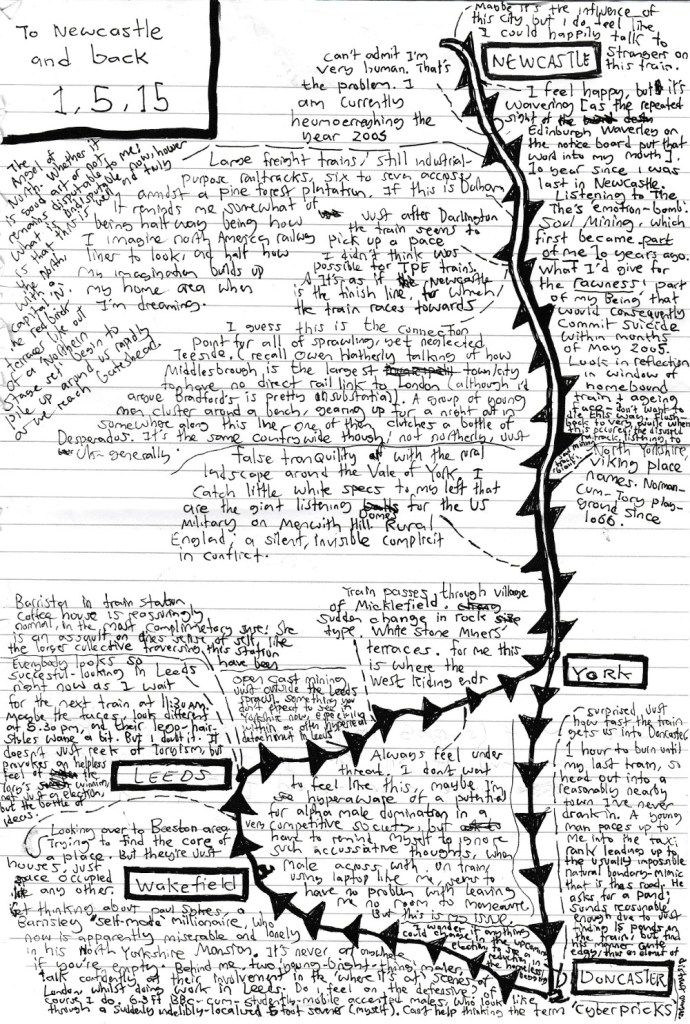 To Newcastle
and back
1,5,15
Maybe it's the influence of
this city, but I do feel like
I could happily talk to
strangers on
this train.
NEWCASTLE
can't admit I'm
very human. That's
the problem. I
am currently
the
year 2005
I feel happy, but it's
wavering [as the repeated
sight of
Edinburgh Waverley on
the notice board put that
word into my mouth].
10 year since I was
last in Newcastle.
Listening to The
The's emotion-bomb:
Soul Mining, which
first became part
of me 10 years ago.
What I'd give for
the rawness! part
of my Being that
would consequently
commit suicide
within months
of May 2005.
Look in reflection
in window of
homebound
train + ageing
face. don't want to
die this way. flush
back to very walk when
this occurred, the disused
track, listening to
The
Angel of
North. Whether it
is good art or not
remains disputable to me!
What is indisputable now, however
is that this is and truly
the north
with a
capital 'N'.
The red brick
terraces like out
of a Northern
Stage set begin to
pile up around us rapidly
as we reach Gateshead.
Large freight trains/ still industrial-
purpose railtracks, six to seven across
amidst a pine forest plantation. If this is Durham
it reminds me somewhat of
being half way being how
I imagine north America railway
lines to look, and half how
my imagination builds up
my home area when
I'm dreaming.
Just after Darlington
the train seems to
pick up a pace
I didn't think was
possible for TPE trains.
It's as if Newcastle
is the finish line, for whom
the train races towards
I guess this is the connection
point for all of sprawling, yet neglected
Teeside. (recall Owen Hatherly talking of how
Middlesbrough is the largest town/city
to have no direct rail link to London (although I'd
argue Bradford's is pretty insubstantial). A group of young
men cluster around a bench, gearing up for a night out in
somewhere along this line. One of them clutches a bottle of
Desperados. It's the same countrywide though! not northerly, just
UK- generally.
False tranquility with the rural
landscape around the Vale of York. I
catch little white specs to my left that
are the giant listening Domes for the US
military on Menwith Hill. Rural
England; a silent, invisible complicit
in conflict.
North Yorkshire,
viking place
names. Norman-
cum-Tory play-
ground since
1066.
Train passes through village
of Micklefield.
Sudden change in rock
type. White stone Miners'
terraces. for me this
is where the
West Riding ends
YORK
Barrister in train station
coffee house is reassuringly
normal, in the most complimentary sense! She
is an assault on ones sense of self, like
the larger collective traversing this station
have been
Everybody looks so
succesful-looking in Leeds
right now as I wait
for the next train at 11:30am.
Maybe the faces look different
at 5.30pm, and their lego-hair-
styles wane a bit. But I doubt it. It
doesn't just reek of Toryism, but
provokes an helpless
feel of the
tory's winning
not just an election,
but the battle of
ideas.
open cast mining
just outside the Leeds
sprawl. Something you
don't expect to see in
Yorkshire now, especially
within an often hyperreal
detachment in Leeds
LEEDS
Always feel under
threat. I don't want
to feel like this, maybe I'm
hyperaware of a potential
for alpha male domination in a
very competitive society, but
have to remind myself to ignore
such accussative thoughts, when
male across with, on train
using laptop like me, seems to
have no problem with leaving
me no room to manoeuvre.
But this is my issue.
surprised just
how fast the train
gets us into Doncaster
1 hour to burn until
my last train, so
head out into a
reasonably nearby
town I've never
drank in. A young
man paces up to
me into the taxi
rank leading up to
the usually impossible
natural boundary-mimic
that is the road. He
asks for a pound;
sounds reasonable
enough due to just
finding 15 pounds on
the train, but find
his manner quite
edgy, thus an element of
Looking over to Beeston area
Trying to find the core of
a place. But they're just
houses, just
space occupied
like any other.
Wakefield
Get thinking about Paul Sykes, a
Barnsley "self-made" millionaire, who
now is apparently miserable and lonely
in his North Yorkshire Mansion. It's never or nowhere
if you're empty. Behind me, two young-bright-things, males,
talk confidently at their involvement in the 'where it's at' scenes of
London whilst doing work in Leeds. Do I feel on the defensive? of
course I do. 6-3ft BBC-cum-studenty-mobile accented males, who look like
through a suddenly indelibly-localised 5 foot sewer (myself). Can't help thinking the term 'cyberpricks'
wonder if anything
could
the upcoming
election
see a
reduction in
the homeless/
begging
DONCASTER